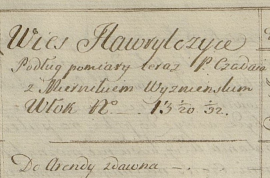 Wies Hawrylczyce
Podług pomiary teraz P. Czadaia
z Miernikiem Wyzmienskim
Włok No 13 20 32.
De Arendy zdawna